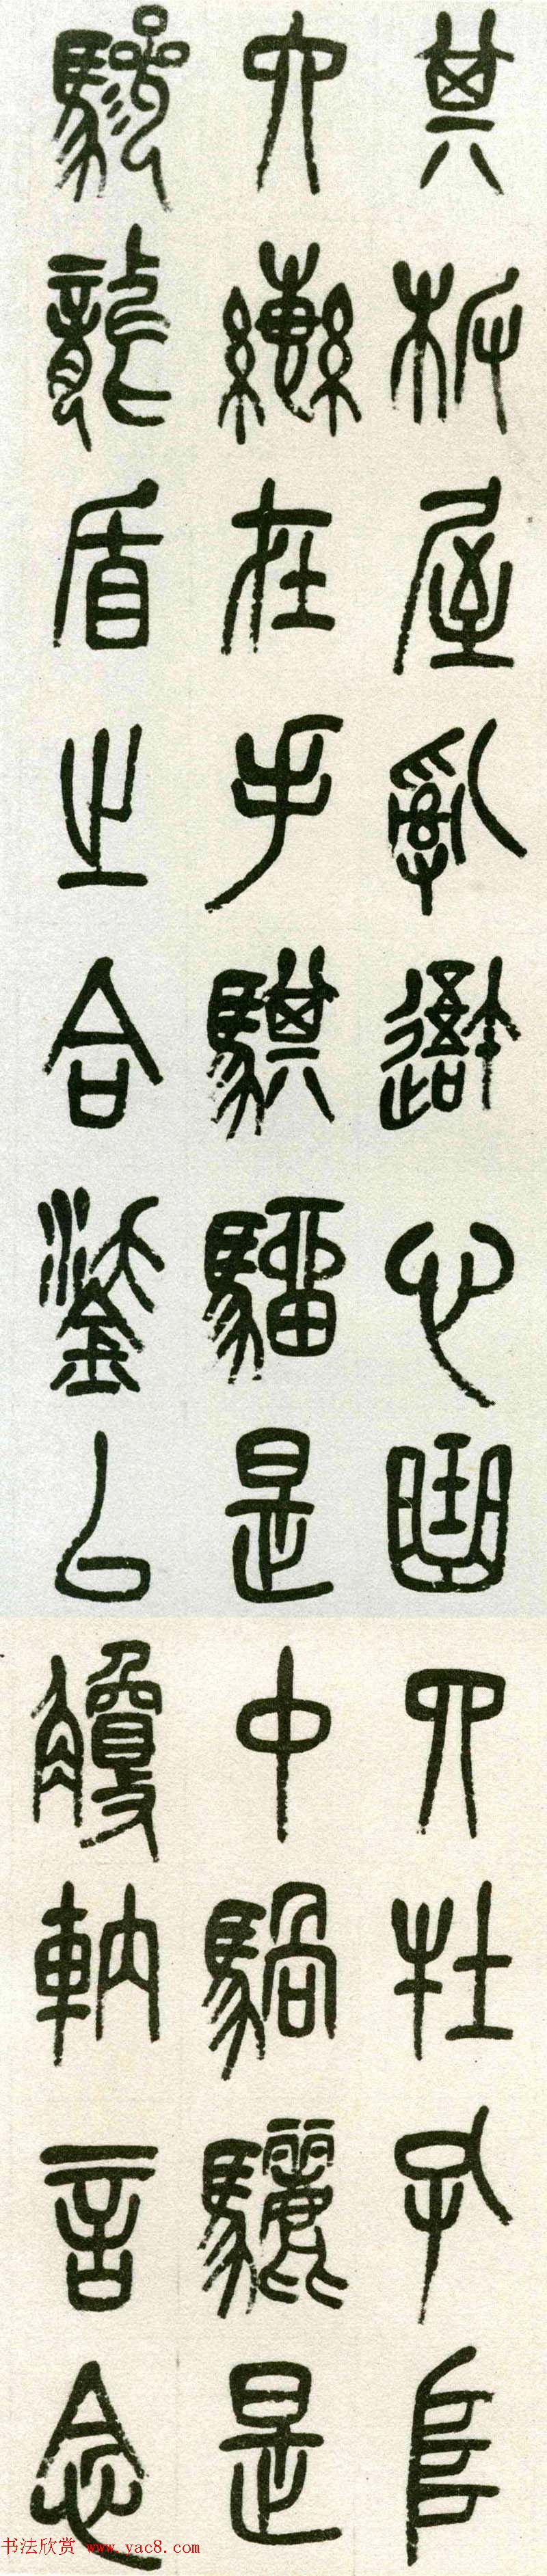 其板屋亂我心曲四牡孔阜
六轡在手騏駵是中騧驪是
驂龍盾之合鋈以觼軜言念
书法欣赏 www.yac8.com